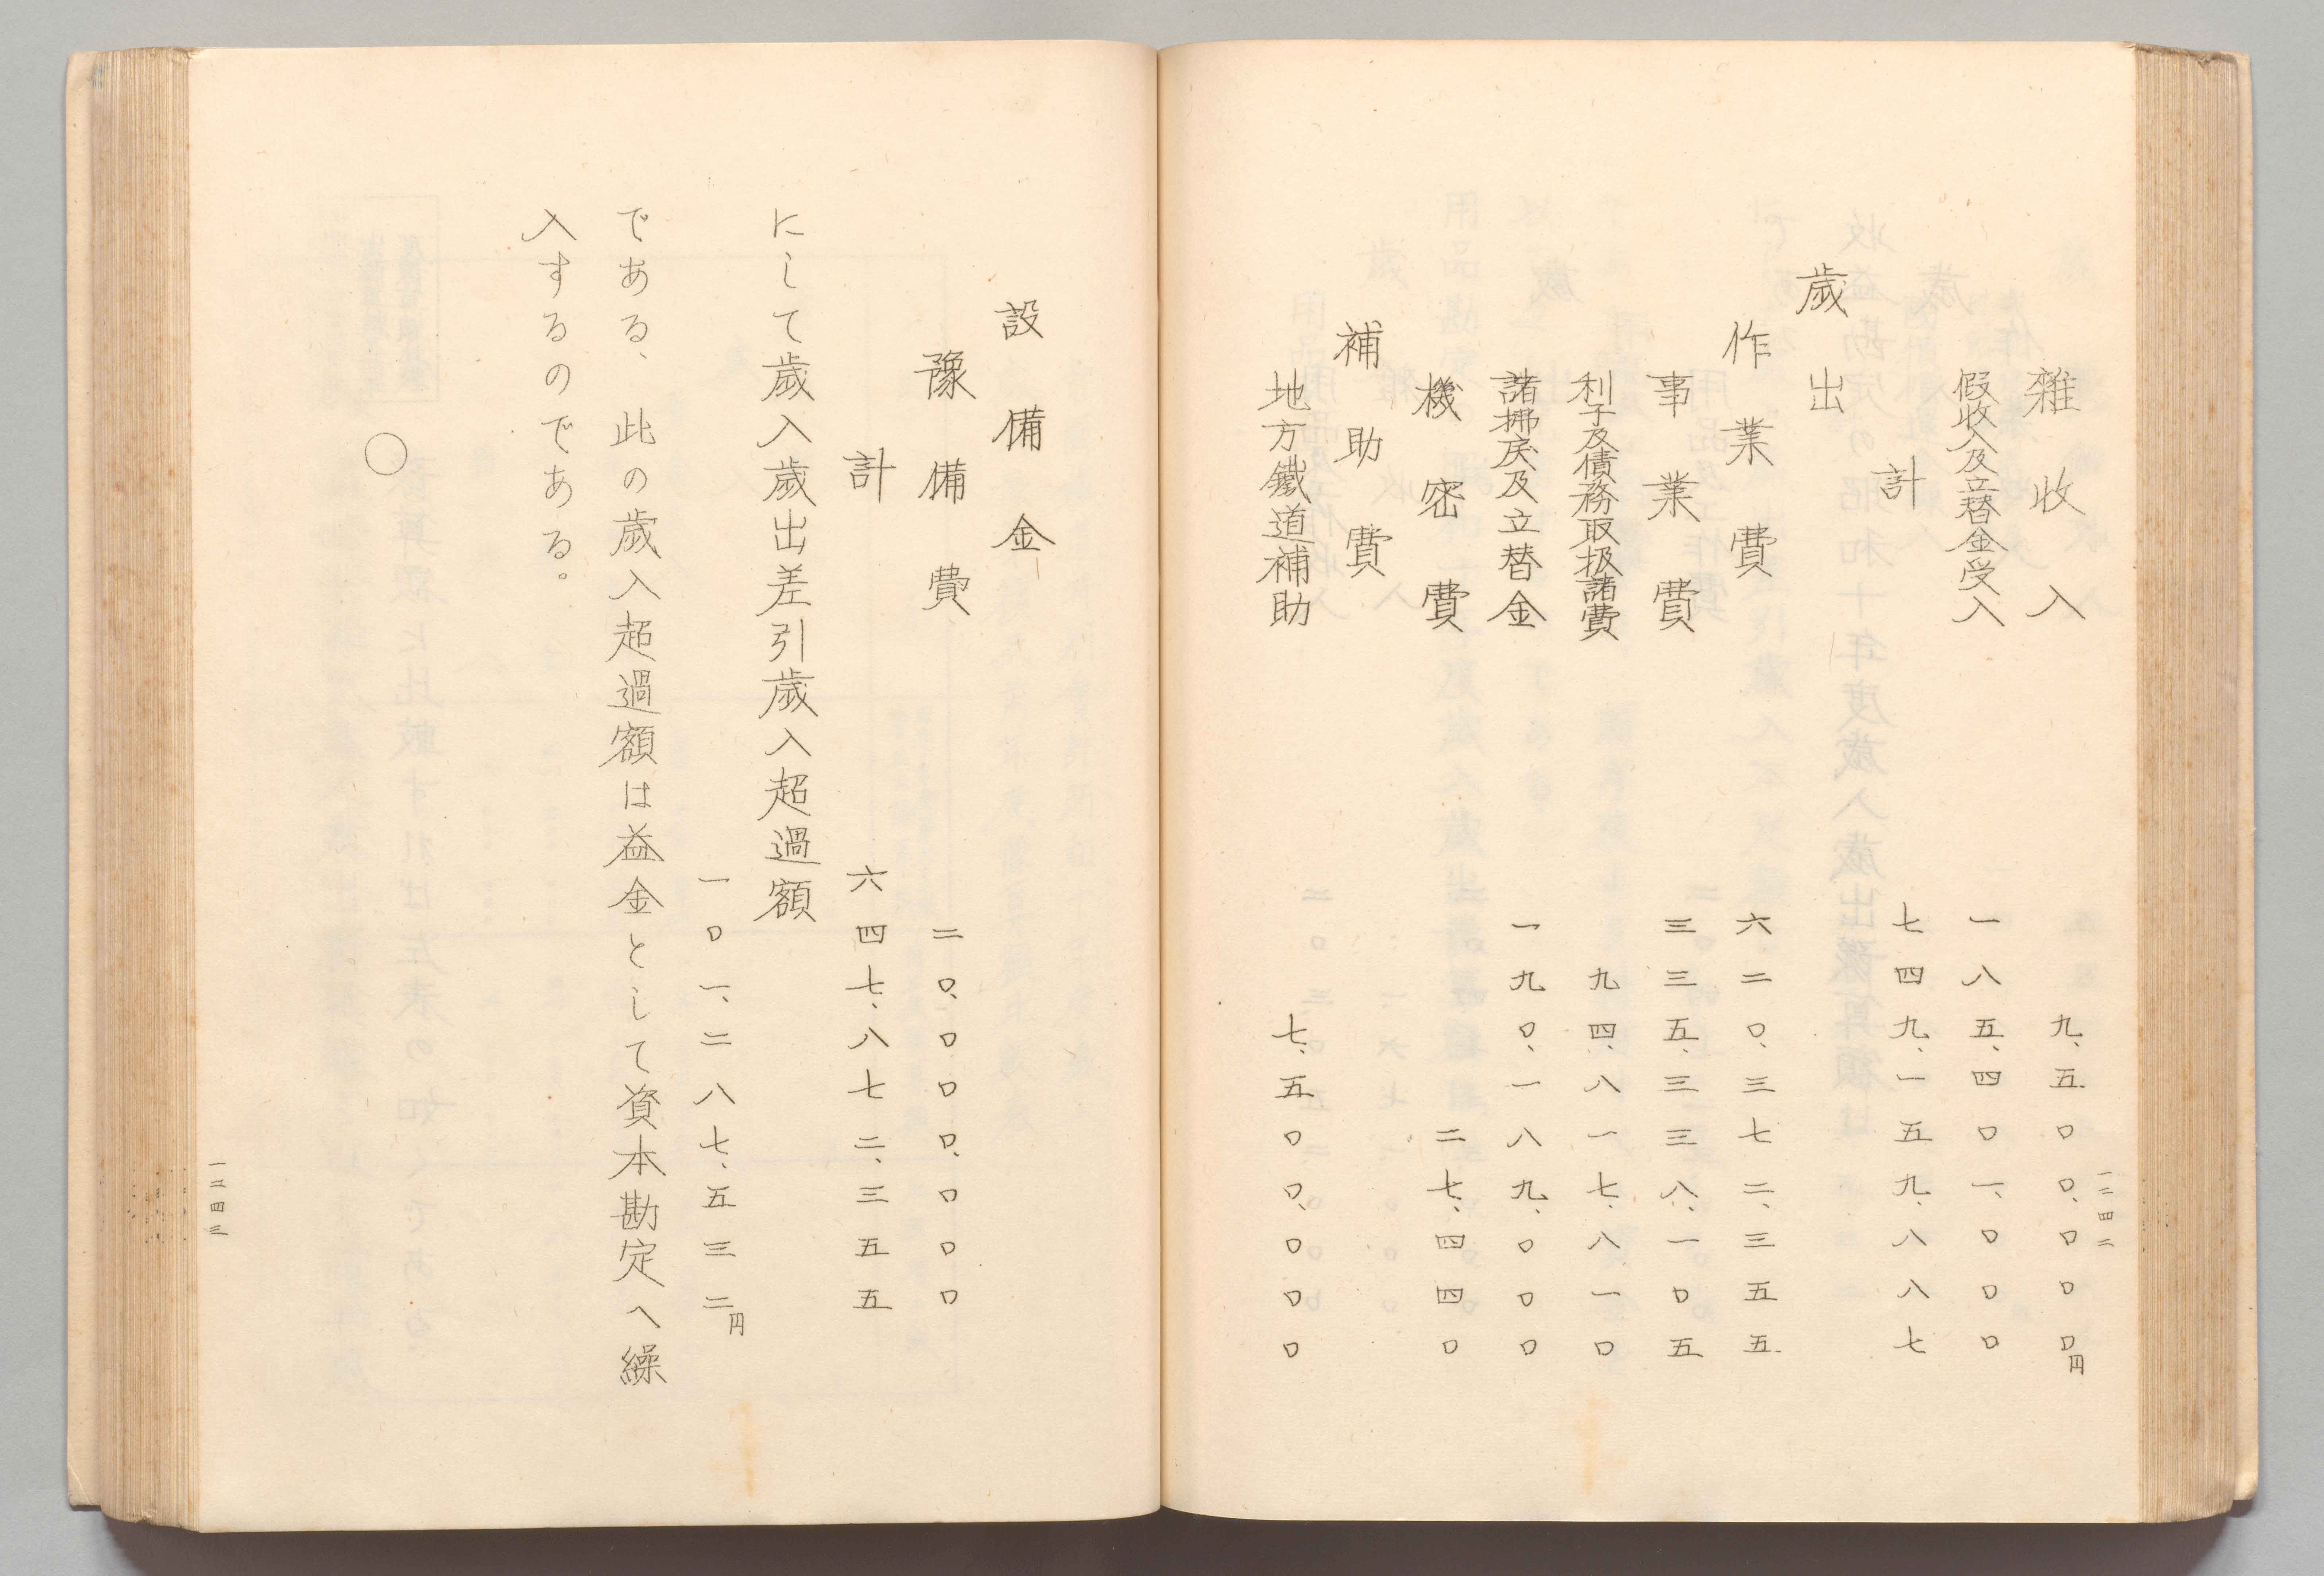 一二四二
雜收入 九、五〇〇、〇〇〇円
假收入及立替金受入 一八五、四〇一、〇〇〇
計 七四九、一五九、八八七
歲出
作業費 六二〇、三七二、三五五
事業費 三三五、三三八、一〇五
利子及債務取扱諸費 九四、八一七、八一〇
諸拂戾及立替金 一九〇、一八九、〇〇〇
機密費 二七、四四〇
補助費
地方鐵道補助 七、五〇〇、〇〇〇
設備金
豫備費 二〇、〇〇〇、〇〇〇
計 六四七、八七二、三五五
にして歲入歲出差引歲入超過額
一〇一、二八七、五三二円
である、此の歲入超過額は益金として資本勘定へ繰
入するのである。
○
一二四三